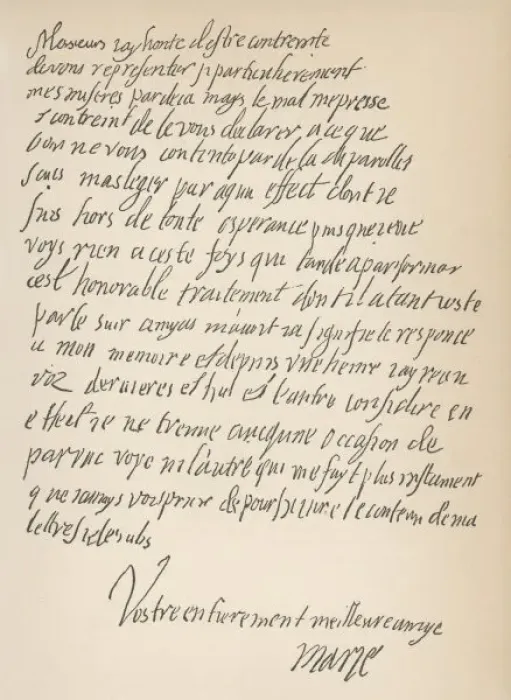 Monsieur jay honte destre contreinte
de vous representer si particulierement
mes miseres par deca mays le mal me presse
& contreint de le vous declarer a ce que
lon ne vous contente par de la de parolles
sans masleger par aqun effect dont je
suis hors de toute esperance puis que je ne
voys rien a ceste foys qui tande a parformer
cest honorable traitement dont il a tant este
parle sur amyas ma signifie le responce
a mon memoire et depuis une heure jay receu
voz dernieres et lun et lautre considere en
effect je ne treuve aucqune occasion de
par une voye ni lautre qui me fayt plus instament
que jamays vous prier de poursuivre le contenu de ma
lettre
Vostre entierement meilleure amye
Marie